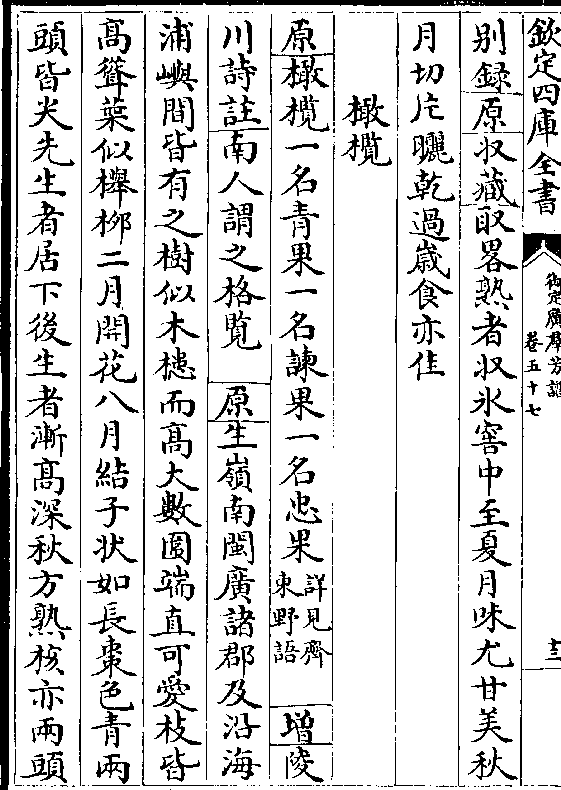 欽定四庫全書
御定廣羣芳譜
卷五十七
十三
别録原収藏取畧熟者収氷窖中至夏月味尤甘美秋
月切片曬乾過歳食亦佳
橄欖
原橄欖一名青果一名諫果一名忠果詳見齊東野語增陵
川詩註南人謂之格覧原生嶺南閩廣諸郡及沿海
浦嶼間皆有之樹似木槵而髙大數圍端直可愛枝皆
髙聳葉似櫸栁二月開花八月結子狀如長棗色青兩
頭皆尖先生者居下後生者漸髙深秋方熟核亦兩頭